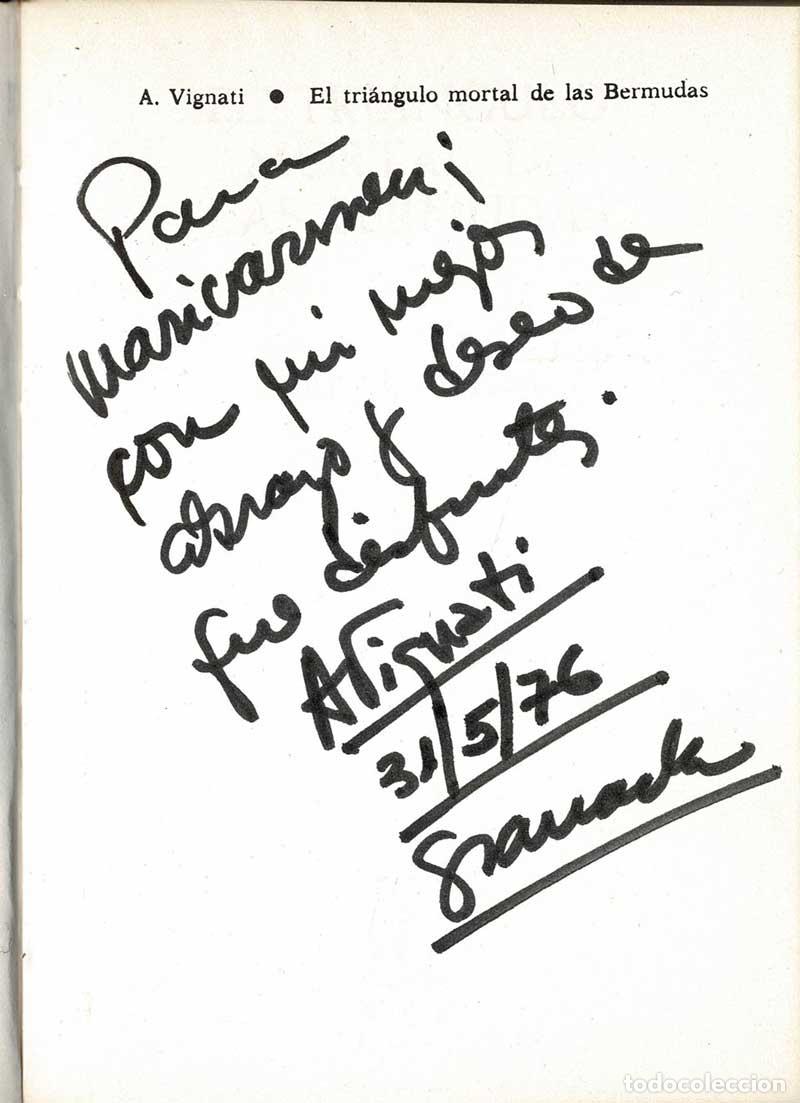 A. Vignati ● El triángulo mortal de las Bermudas
Para
Maricarmen;
con mi mejor
abrazo y deseo de
que disfrutes.
AVignati
31/5/76
Granada
todocoleccion